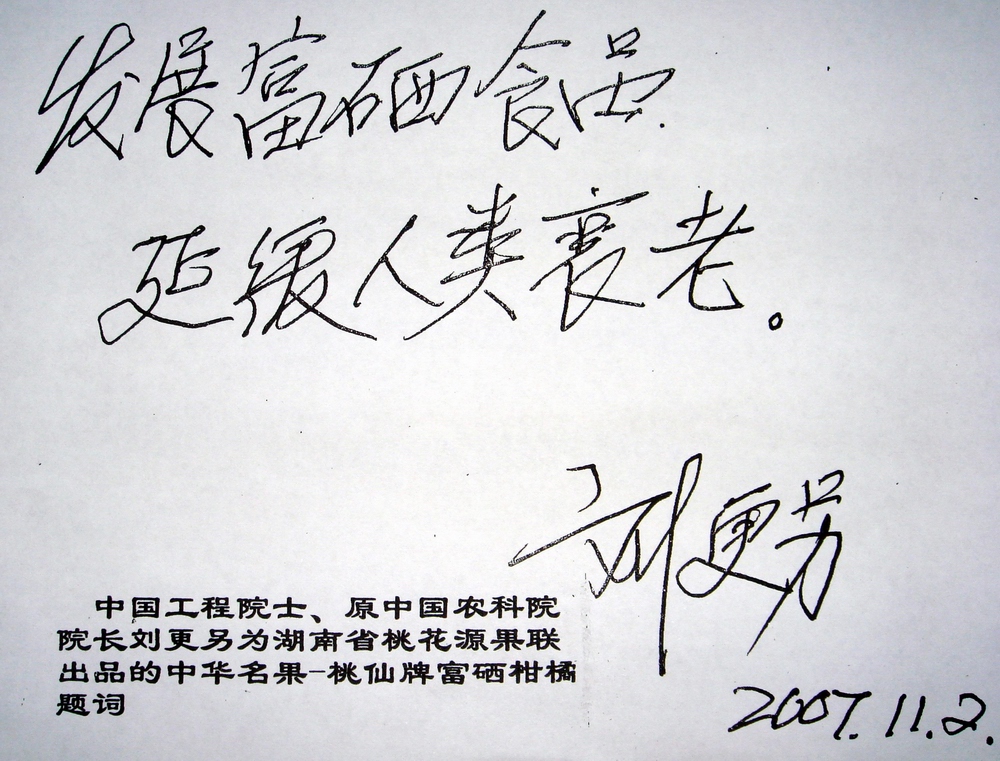 发展富硒食品.
延缓人类衰老。
刘更另
中国工程院士、原中国农科院
院长刘更另为湖南省桃花源果联
出品的中华名果-桃仙牌富硒柑橘
题词
2007.11.2.